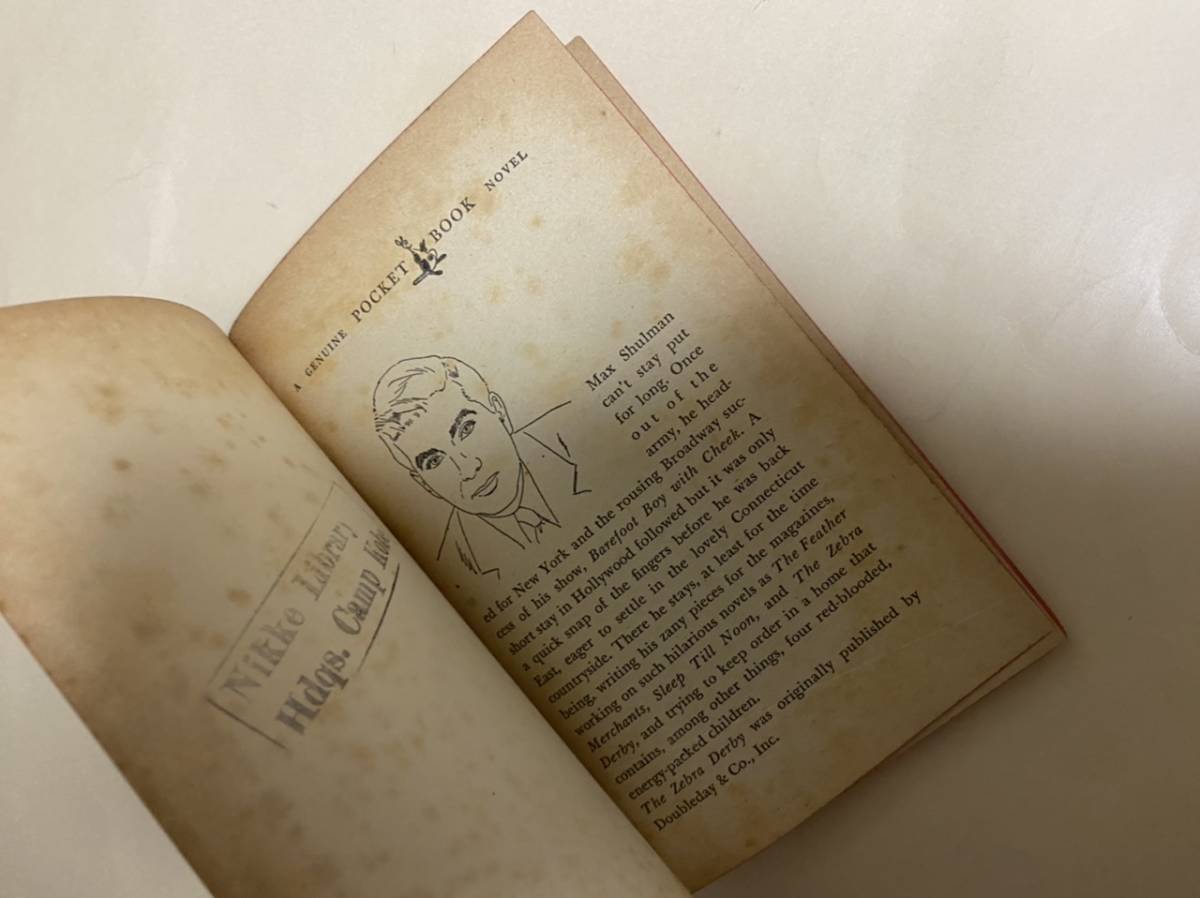 Nikke Library
Hdqs. Camp Kobe
A GENUINE POCKET BOOK NOVEL
Max Shulman
can't stay put
for long. Once
out of the
army, he head-
ed for New York and the rousing Broadway suc-
cess of his show, Barefoot Boy with Cheek. A
short stay in Hollywood followed but it was only
a quick snap of the fingers before he was back
East, eager to settle in the lovely Connecticut
countryside. There he stays, at least for the time
being, writing his zany pieces for the magazines,
working on such hilarious novels as The Feather
Merchants, Sleep Till Noon, and The Zebra
Derby, and trying to keep order in a home that
contains, among other things, four red-blooded,
energy-packed children.
The Zebra Derby was originally published by
Doubleday & Co., Inc.